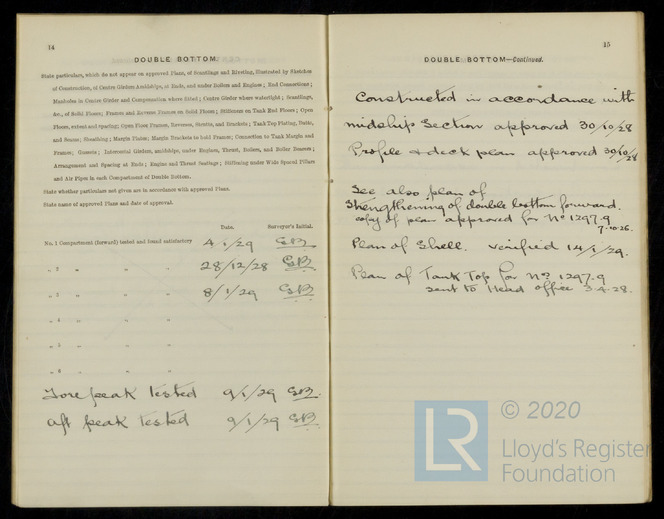 14
DOUBLE BOTTOM.
State particulars, which do not appear on approved Plans, of Scantlings and Riveting, illustrated by Sketches
of Construction, of Centre Girders Amidships, at Ends, and under Boilers and Engines; End Connections;
Manholes in Centre Girder and Compensation where fitted; Centre Girder where watertight; Scantlings,
&c., of Solid Floors; Frames and Reverse Frames on Solid Floors; Stiffeners on Tank End Floors; Open
Floors, extent and spacing; Open Floor Frames, Reverses, Struts, and Brackets; Tank Top Plating, Butts,
and Seams; Sheathing; Margin Plates; Margin Brackets to hold Frames; Connection to Tank Margin and
Frames; Gussets; Intercostal Girders, amidships, under Engines, Thrust, Boilers, and Boiler Bearers;
Arrangement and Spacing at Ends; Engine and Thrust Seatings; Stiffening under Wide Spaced Pillars
and Air Pipes in each Compartment of Double Bottom.
State whether particulars not given are in accordance with approved Plans.
State name of approved Plans and date of approval.
Date. Surveyor's Initial.
No. 1 Compartment (forward) tested and found satisfactory 4/1/29 GB
„ 2 „ „ „ 28/12/28 GB
„ 3 „ „ „ 8/1/29 GB
„ 4 „ „ „
„ 5 „ „ „
„ 6 „ „ „
Fore peak tested 9/1/29 GB
Aft peak tested 9/1/29 GB
15
DOUBLE BOTTOM—Continued.
Constructed in accordance with
midship Section approved 30/10/28
Profile & deck plan approved 30/10/28
See also plan of
Strengthening of double bottom forward.
copy of plan approved for No 1297.9
7.10.26.
Plan of Shell. verified 14/1/29.
Plan of Tank Top for Nos 1297.9
sent to Head office 3.4.28.
LR © 2020
Lloyd's Register
Foundation